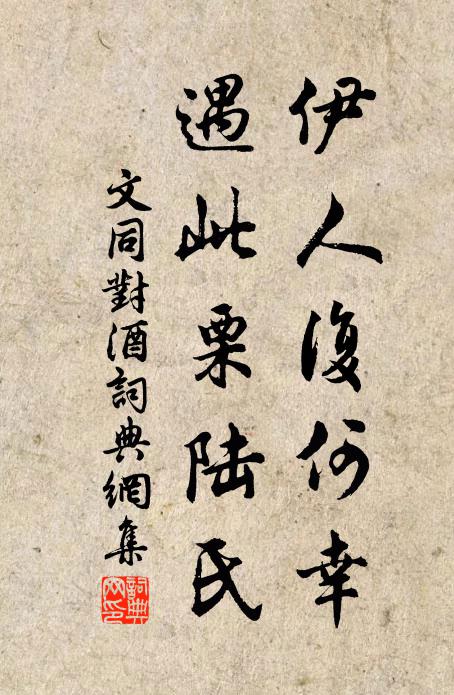 伊人復何幸
遇此栗陸氏
文同對酒詞典網集
詞典網印